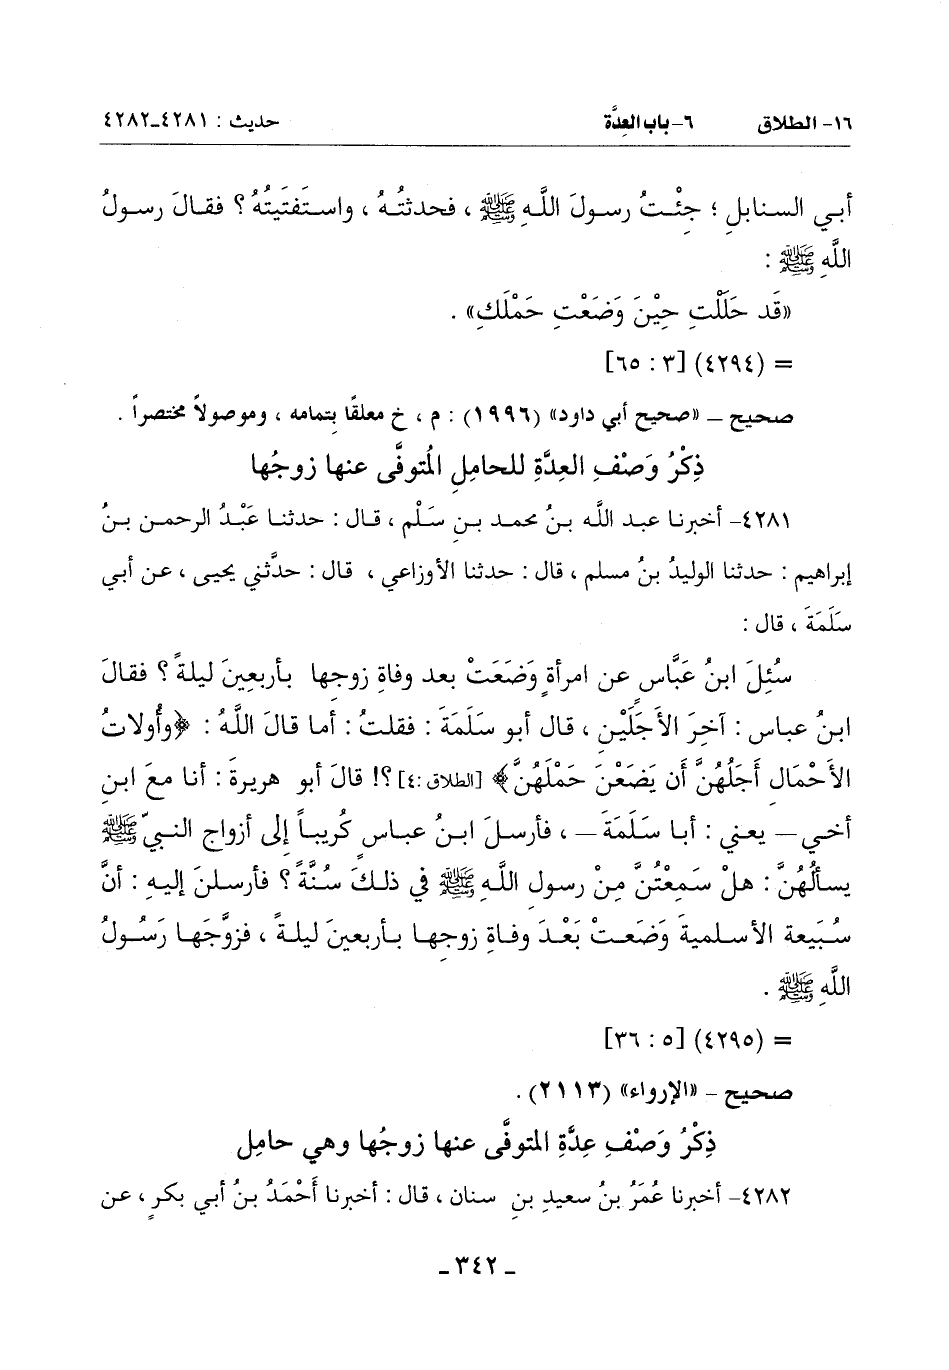 ١٦- الطلاق ٦- باب العِدَّة حديث : ٤٢٨١-٤٢٨٢
أبـي السـنابلِ ؛ جِئْـتُ رسـولَ اللَّـهِ ﷺ ، فحدثتُـهُ ، واسـتَفتَيتُهُ ؟ فقـالَ رسـولُ
اللَّهِ ﷺ :
«قَد حَلَلْتِ حِيْنَ وَضَعْتِ حَمْلَكِ» .
= (٤٢٩٤) [٣ : ٦٥]
صحيح – «صحيح أبي داود» (١٩٩٦) : م ، خ معلقًا بتمامه ، وموصولاً مختصراً .
ذِكْرُ وَصْفِ العِدَّةِ للحامِلِ المُتوفَّى عنها زوجُها
٤٢٨١- أخبرنـا عبـد اللَّـه بـنُ محمـد بـنِ سَـلْم ، قـال : حدثنـا عَبْـدُ الرحمـن بـنُ
إبراهيم : حدثنا الوليدُ بنُ مسلم ، قال : حدثنا الأوزاعي ، قال : حدَّثني يحيى ، عن أبي
سَلَمَةَ ، قال :
سُئِلَ ابنُ عَبَّاسٍ عن امرأةٍ وَضَعَتْ بعد وفاةِ زوجِها بأربعِينَ ليلةً ؟ فقالَ
ابنُ عباس : آخِرَ الأَجَلَيْنِ ، قال أبو سَلَمَةَ : فقلتُ : أما قالَ اللَّهُ : ﴿وأُولاتُ
الأَحْمَالِ أَجَلُهُنَّ أَن يَضَعْنَ حَمْلَهُنَّ﴾ [الطلاق :٤] ؟! قالَ أبو هريرةَ : أنا معَ ابنِ
أخـي – يعـني : أبـا سَـلَمَةَ – ، فأرسـلَ ابـنُ عبـاسٍ كُرَيبـاً إلى أزواجِ النـبيِّ ﷺ
يسألُهُنَّ : هلْ سَمِعْتُنَّ مِنْ رسولِ اللَّهِ ﷺ في ذلكَ سُنَّةً ؟ فأرسلنَ إليهِ : أنَّ
سُـبَيعةَ الأسـلميةَ وَضَعـتْ بَعْـدَ وفـاةِ زوجِهـا بـأربعينَ ليلـةً ، فزوَّجَهـا رَسُـولُ
اللَّهِ ﷺ .
= (٤٢٩٥) [٥ : ٣٦]
صحيح – «الإرواء» (٢١١٣) .
ذِكْرُ وَصْفِ عِدَّةِ المتوفَّى عنها زوجُها وهي حامِل
٤٢٨٢- أخبرنا عُمَرُ بنُ سعيدِ بنِ سنان ، قال : أخبرنا أَحْمَدُ بنُ أبي بكرٍ ، عن
- ٣٤٢ -